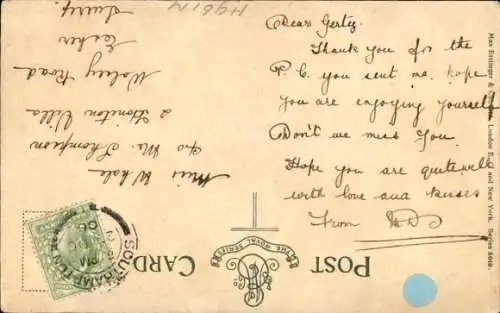 Dear Gertey.
Thank you for the
P. C. you sent me. hope
you are enjoying yourself
Don't we miss you.
Hope you are quite well
with love and kisses
from
Miss Whale
c/o Mr. Thompson
2 Honiton Villa
Wolsey Road
Esher
Surrey.
H961N
POST CARD
THE ROYAL SERIES
SOUTHAMPTON
PM
Max Ettlinger &
London E.C. and New York.
Series